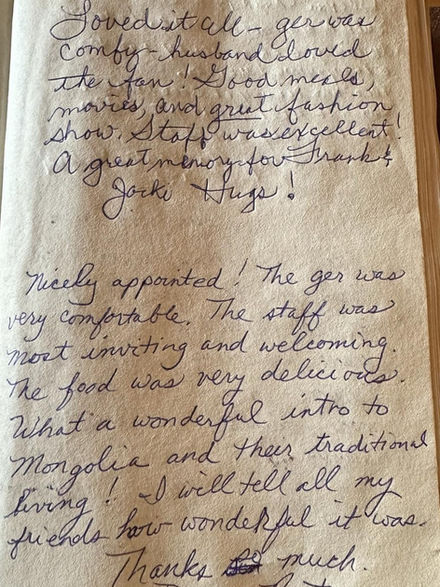 Loved it all - ger was
comfy - husband loved
the fan! Good meals,
movies, and great fashion
show. Staff was excellent!
A great memory for Frank &
Jacki Hugs!
Nicely appointed! The ger was
very comfortable. The staff was
most inviting and welcoming.
The food was very delicious.
What a wonderful intro to
Mongolia and their traditional
living! I will tell all my
friends how wonderful it was.
Thanks much.